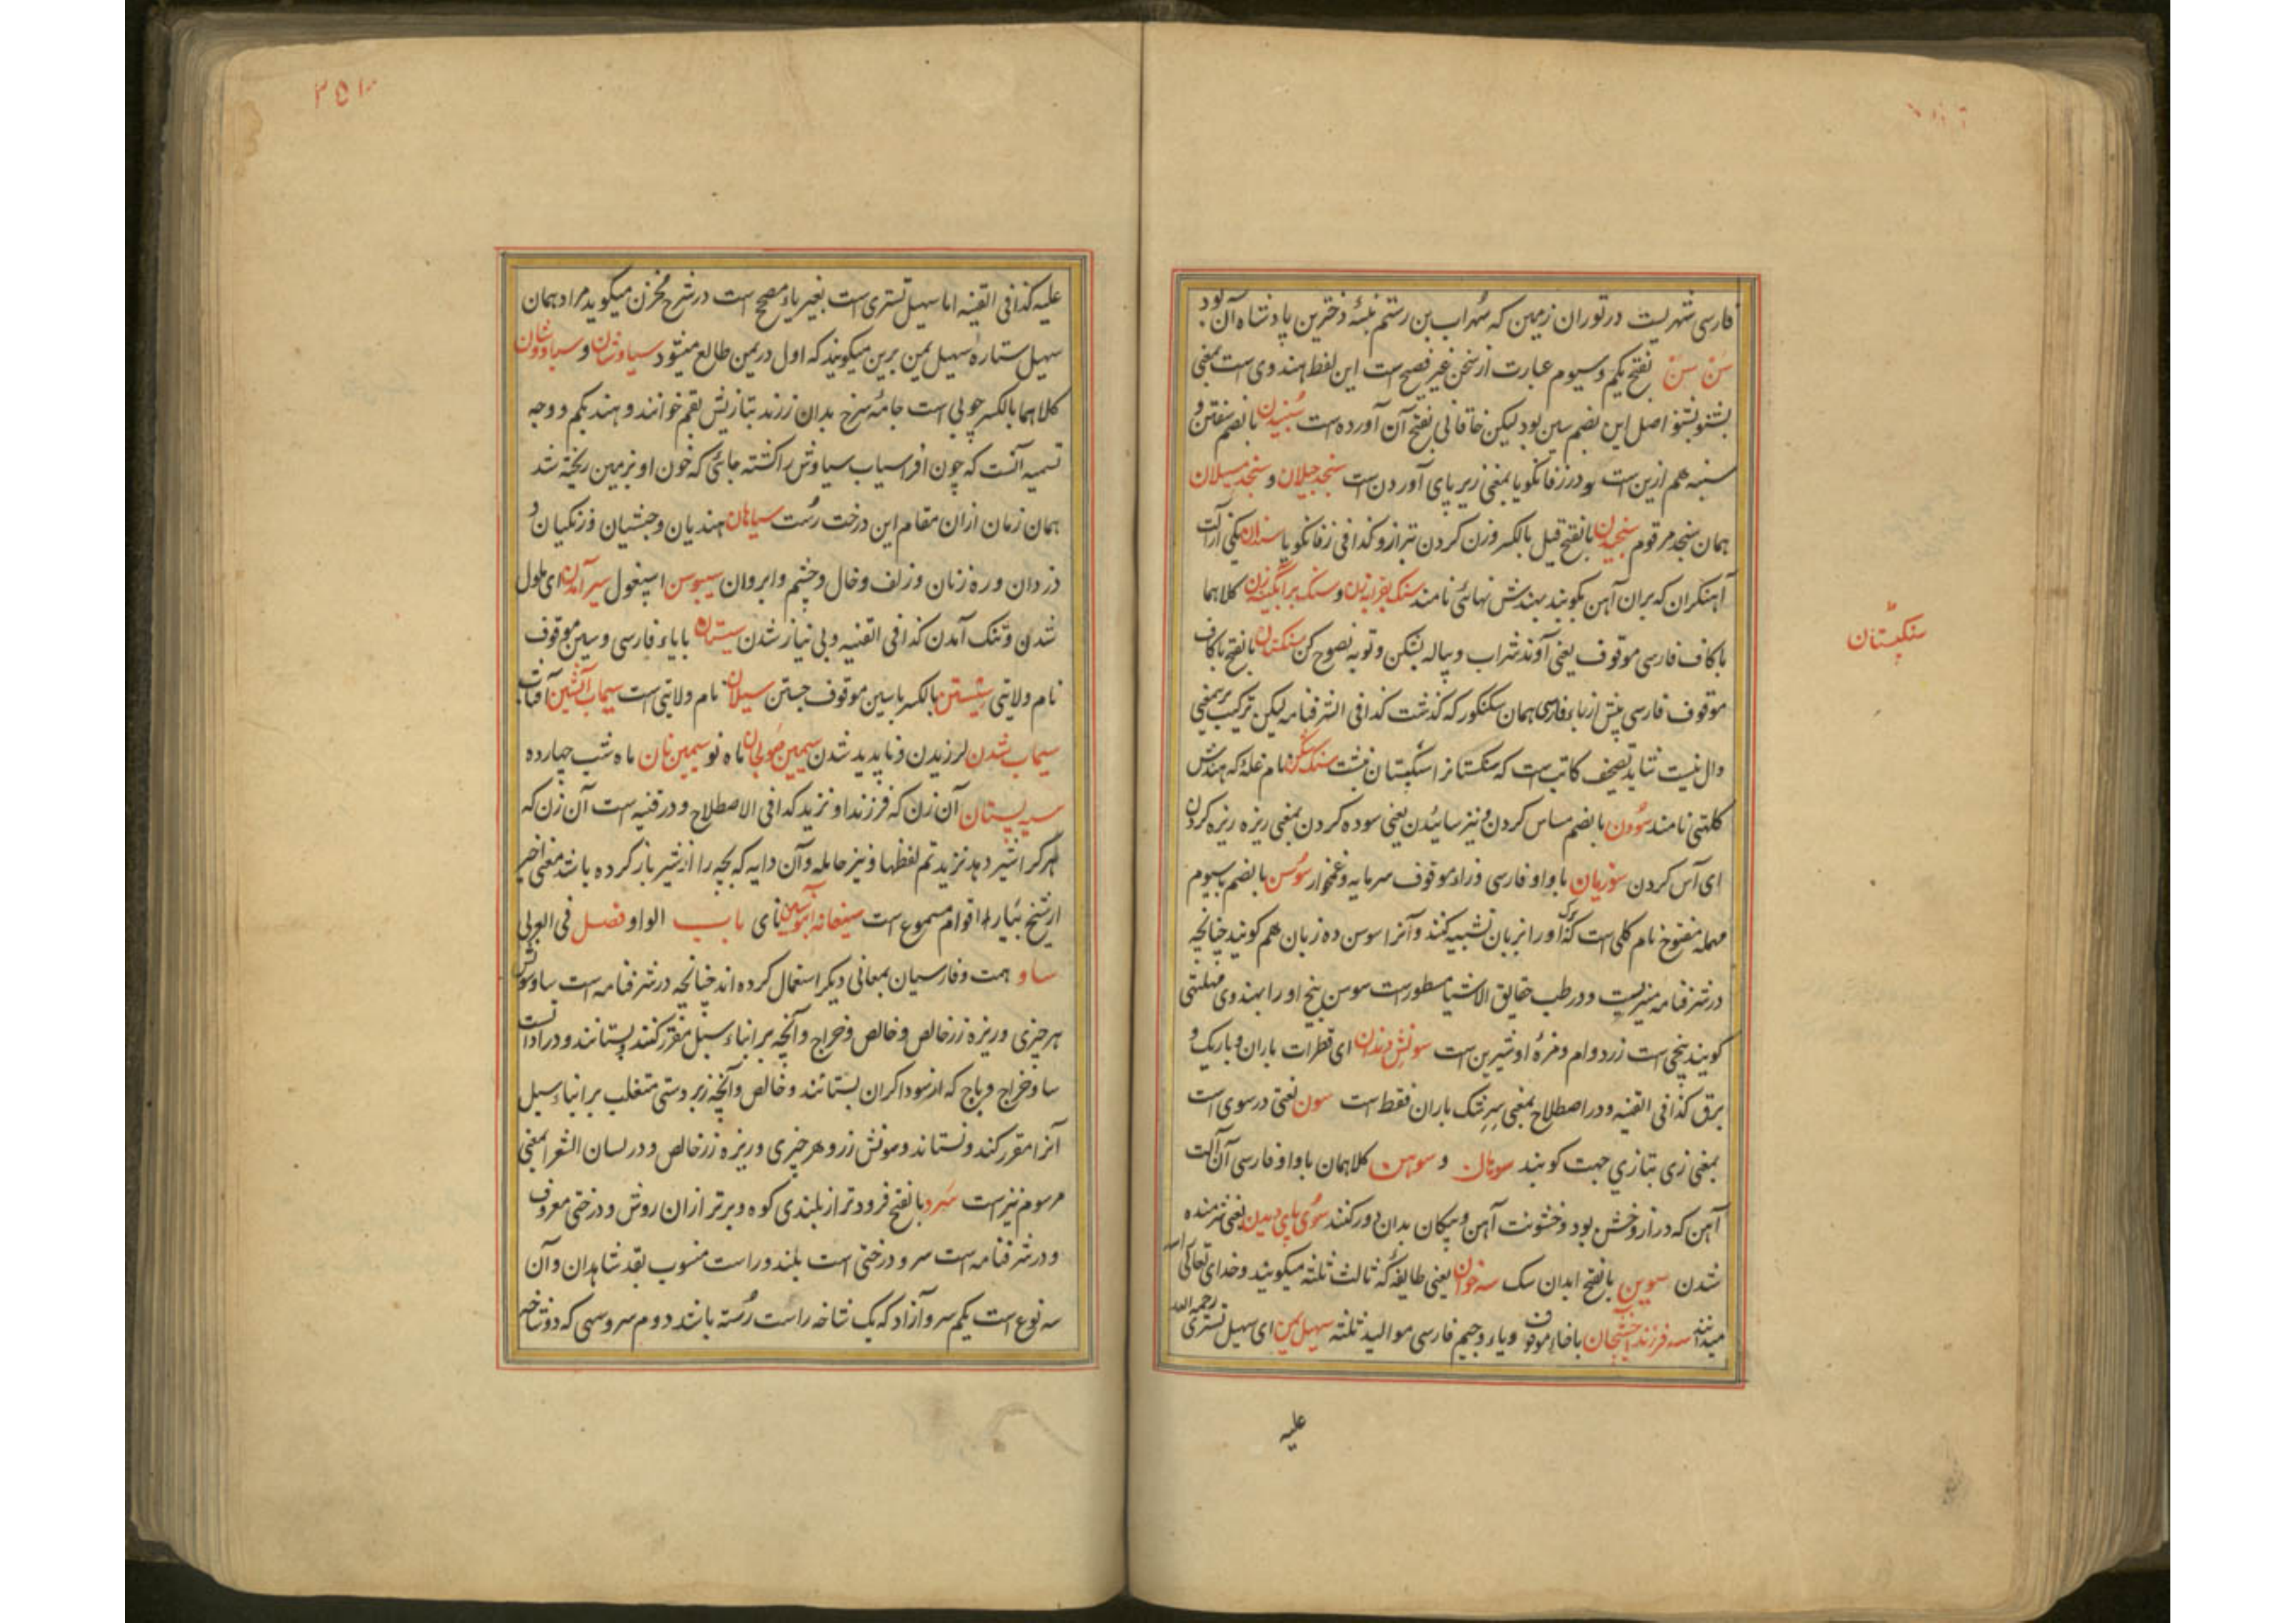 فارسی شهریست در توران زمین که سهراب بن رستم نبسهٔ دخترین پادشاه آن بود
سن سن بفتح یکم و سیوم عبارت از سخن غیر فصیح است این لفظ هندوی است بمعنی
بشنو بشنو اصل این بضم سین بود لیکن خاقانی بفتح آن آورده است سنبیدن بالضم سفتن و
سنبه هم ازین است و در زفانگویا بمعنی زیر پای آوردن است سنجد جیلان و سنجد سیلان
همان سنجد مرقوم سنجیدن بالفتح قیل بالکسر وزن کردن بترازو کذا فی زفانگویا سندان یکی از آلت
آهنگران که بران آهن بکوبند بهندش نهائی نامند سنگ بقرابه زن و سنگ بر آبگینه زن کلاهما
باکاف فارسی موقوف یعنی آوند شراب و پیاله بشکن و توبه نصوح کن سنکبستان بالفتح باکاف
موقوف فارسی پیش از باء فارسی همان سکنکور که گذشت کذا فی الشرفنامه لیکن ترکیب بر معنی
دال نیست شاید تصحیف کاتب است که سنگستانرا سنکبستان نبشت سنگ نام غله که هندش
کلتهی نامند سودن بالضم مساس کردن و نیز سائیدن یعنی سوده کردن بمعنی ریزه ریزه کردن
ای آس کردن سوزیان باواو فارسی و زاء موقوف سرمایه و غمخوار سوسن بالضم با سیوم
مهملهٔ مفتوح نام گلی است که او را بزبان تشبیه کنند و آنرا سوسن ده زبان هم گویند چنانچه
در شرفنامه نیز است و در طب حقایق الاشیا مسطور است سوسن بیخ او را بهندوی مهلتی
گویند بیخی است زرد وام و مزهٔ او شیرین است سونش دندان ای قطرات باران و باریک و
برق کذا فی القنیه و در اصطلاح بمعنی سرشک باران فقط است سون لغتی در سوی است
بمعنی زی بتازی جهت گویند سوهان و سوهن کلاهمان باواو فارسی آن آلت
آهن که دراز و خش بود و خشونت آهن و پیکان بدان دور کنند سوی پای دیدن یعنی شرمنده
شدن سوین بالفتح ابدان سگ سه خوان یعنی طایفهٔ که ثالث ثلثه میگویند و خدای تعالی را سه
میدانند سه فرزند باخاء موقوف و یاء و جیم فارسی موالید ثلثه سهیل یمن ای سهیل تستری رحمه الله
علیه
سنکپستان
۳۵۱
علیه کذا فی القنیه اما سهیل تستری است بغیر یاء مصحح است در شرح مخزن میگوید مراد همان
سهیل ستارهٔ سهیل یمن برین میگویند که اول در یمن طالع میشود سیاوشان و سیاووشان
کلاهما بالکسر چوبی است جامهٔ سرخ بدان رزند بتازیش بقم خوانند و هند بکم و وجه
تسمیه آنست که چون افراسیاب سیاوش را کشته جائی که خون او بزمین ریخته شد
همان زمان ازان مقام این درخت رست سیاهان هندیان و حبشیان و زنگیان و
دزدان و ره زنان و زلف و خال و چشم و ابروان سیبوسن اسپغول سیر آمدن ای ملول
شدن و تنگ آمدن کذا فی القنیه و بی نیاز شدن سیستان بایاء فارسی و سین موقوف
نام ولایتی بالکسر باسین موقوف جستن سیلان نام ولایتی است سیماب آتشین آفتاب
سیماب شدن لرزیدن و ناپدید شدن سیمین صولجان ماه نو سیمین نان ماه شب چهارده
سیه پستان آن زن که فرزند او نزید کذا فی الاصطلاح و در قنیه است آن زن که
هر کرا شیر دهد نزید تم لفظها و نیز حامله و آن دایه که بچه را از شیر باز کرده باشد معنی اخیر
از شیخ اقوام مسموع است سیه خانه آبنوسین نای باب الواو فصل فی العربی
ساو همت و فارسیان بمعانی دیگر استعمال کرده اند چنانچه در شرفنامه است ساو سونش
هر چیزی و ریزه زر خالص و خالص و خراج و آنچه بر ابناء سبیل مقرر کنند و بستانند و در ادات است
ساو خراج و باج که از سوداگران بستانند و خالص و آنچه زبردستی متغلب بر ابناء سبیل
آنرا مقرر کند و بستاند و سونش زر و هر چیزی و ریزه زر خالص و در لسان الشعرا بمعنی
مرسوم نیز است سرو بالفتح فرودتر از بلندی کوه و برتر ازان روش و درختی معروف
و در شرفنامه است سرو درختی است بلند و راست منسوب بقد شاهدان و آن
سه نوع است یکم سرو آزاد که یک شاخه راست رسته باشد دوم سرو سهی که دو شاخه